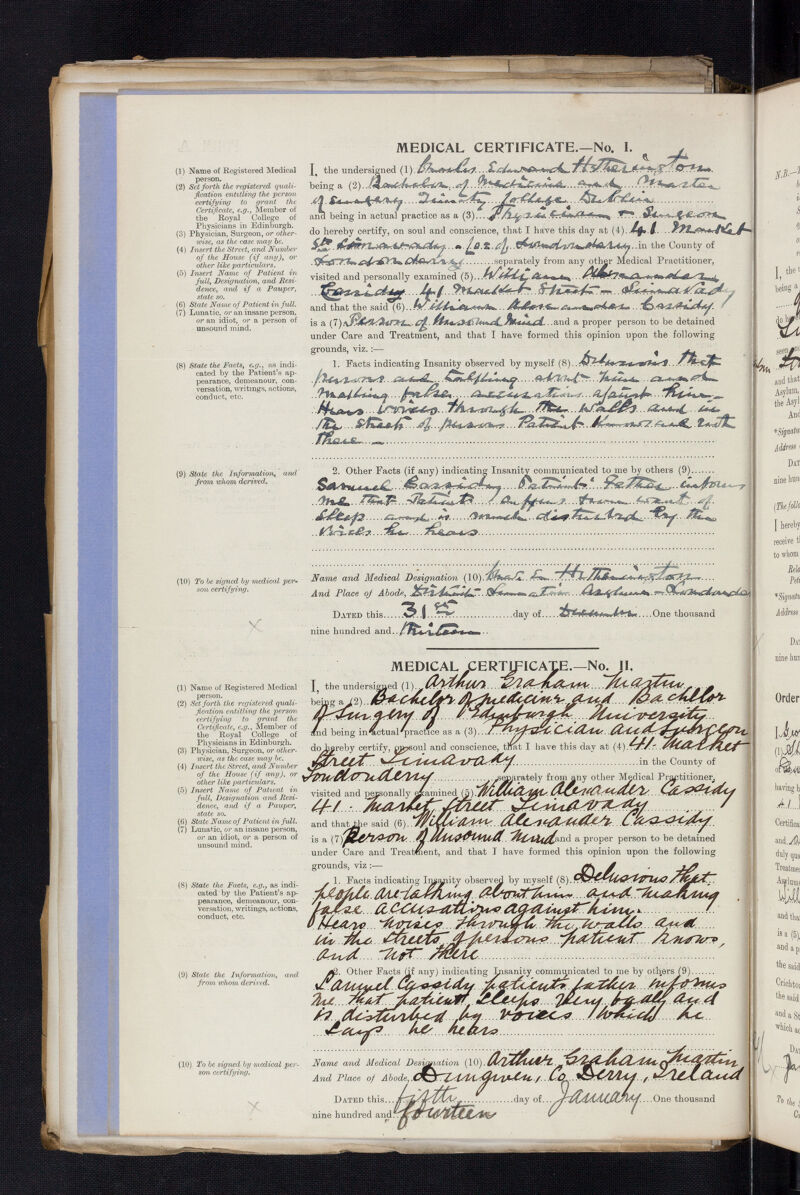 MEDICAL CERTIFICATE.—No. I.
(1) Name of Registered Medical
person.
(2) Set forth the registered quali-
fication entitling the person
certifying to grant the
Certificate, e.g., Member of
the Royal College of
Physicians in Edinburgh.
(3) Physician, Surgeon, or other-
wise, as the case may be.
(4) Insert the Street, and Number
of the House (if any), or
other like particulars.
(5) Insert Name of Patient in
full, Designation, and Resi-
dence, and if a Pauper,
state so.
(6) State Name of Patient in full.
(7) Lunatic, or an insane person,
or an idiot, or a person of
unsound mind.
(8) State the Facts, e.g., as indi-
cated by the Patient's ap-
pearance, demeanour, con-
versation, writings, actions,
conduct, etc.
(9) State the Information, and
from whom derived.
(10) To be signed by medical per-
son certifying.
I, the undersigned (1) Charles Edward Hetherington
being a (2) Bachelor of Medicine and Master
of Surgery Trinity College Dublin
and being in actual practice as a (3) Physician & Surgeon
do hereby certify, on soul and conscience, that I have this day at (4) 41 Market
St Limavady - Co. of Londonderry in the County of
Londonderry separately from any other Medical Practitioner,
visited and personally examined (5) William Alexander
Cassidy 41 Market Street - Limavady
and that the said (6) William Alexander Cassidy
is a (7) Person of Unsound Mind and a proper person to be detained
under Care and Treatment, and that I have formed this opinion upon the following
grounds, viz. :—
1. Facts indicating Insanity observed by myself (8) Delusions that
persons are talking about him and
making false accusations against him -
Hears Voices through the walls and in
the streets of persons Patient knows and not
there -
2. Other Facts (if any) indicating Insanity communicated to me by others (9)
Samuel Cassidy Patients' Father informs
me that Patient suffers from want of
Sleep and is much disturbed by the
Voices he hears
Name and Medical Designation (10) Hetherington
And Place of Abode, District Lunatic Asylum - Londonderry
DATED this 31st day of December One thousand
nine hundred and thirteen
MEDICAL CERTIFICATE.—No. II.
(1) Name of Registered Medical
person.
(2) Set forth the registered quali-
fication entitling the person
certifying to grant the
Certificate, e.g., Member of
the Royal College of
Physicians in Edinburgh.
(3) Physician, Surgeon, or other-
wise, as the case may be.
(4) Insert the Street, and Number
of the House (if any), or
other like particulars.
(5) Insert Name of Patient in
full, Designation and Resi-
dence, and if a Pauper,
state so.
(6) State Name of Patient in full.
(7) Lunatic, or an insane person,
or an idiot, or a person of
unsound mind.
(8) State the Facts, e.g., as indi-
cated by the Patient's ap-
pearance, demeanour, con-
versation, writings, actions,
conduct, etc.
(9) State the Information, and
from whom derived.
(10) To be signed by medical per-
son certifying.
I, the undersigned (1) Arthur Graham Martin
being a (2) Bachelor of medicine and Bachelor
of Surgery of Edinburgh University
and being in actual practice as a (3) Physician and Surgeon
do hereby certify, on soul and conscience, that I have this day at (4) 41 Market
Street Limavady in the County of
Londonderry separately from any other Medical Practitioner,
visited and personally examined (5) William Alexander Cassidy
41. Market Street Limavady
and that the said (6) William Alexander Cassidy
is a (7) Person of Unsound Mind and a proper person to be detained
under Care and Treatment, and that I have formed this opinion upon the following
grounds, viz :—
1. Facts indicating Insanity observed by myself (8) Delusions that
people are talking about him and making
false accusations against him.
Hears noises through the walls and
in the streets, of persons patient knows,
and not there
2. Other Facts (if any) indicating Insanity communicated to me by others (9)
Samuel Cassidy patients father informs
me that patient, sleeps very badly and
is disturbed by voices which he
says he hears
Name and Medical Designation (10) Arthur Graham Martin
And Place of Abode, Dungiven, Co Derry, Ireland
DATED this fifth day of January One thousand
nine hundred and fourteen
N.B.—
I, the
being a